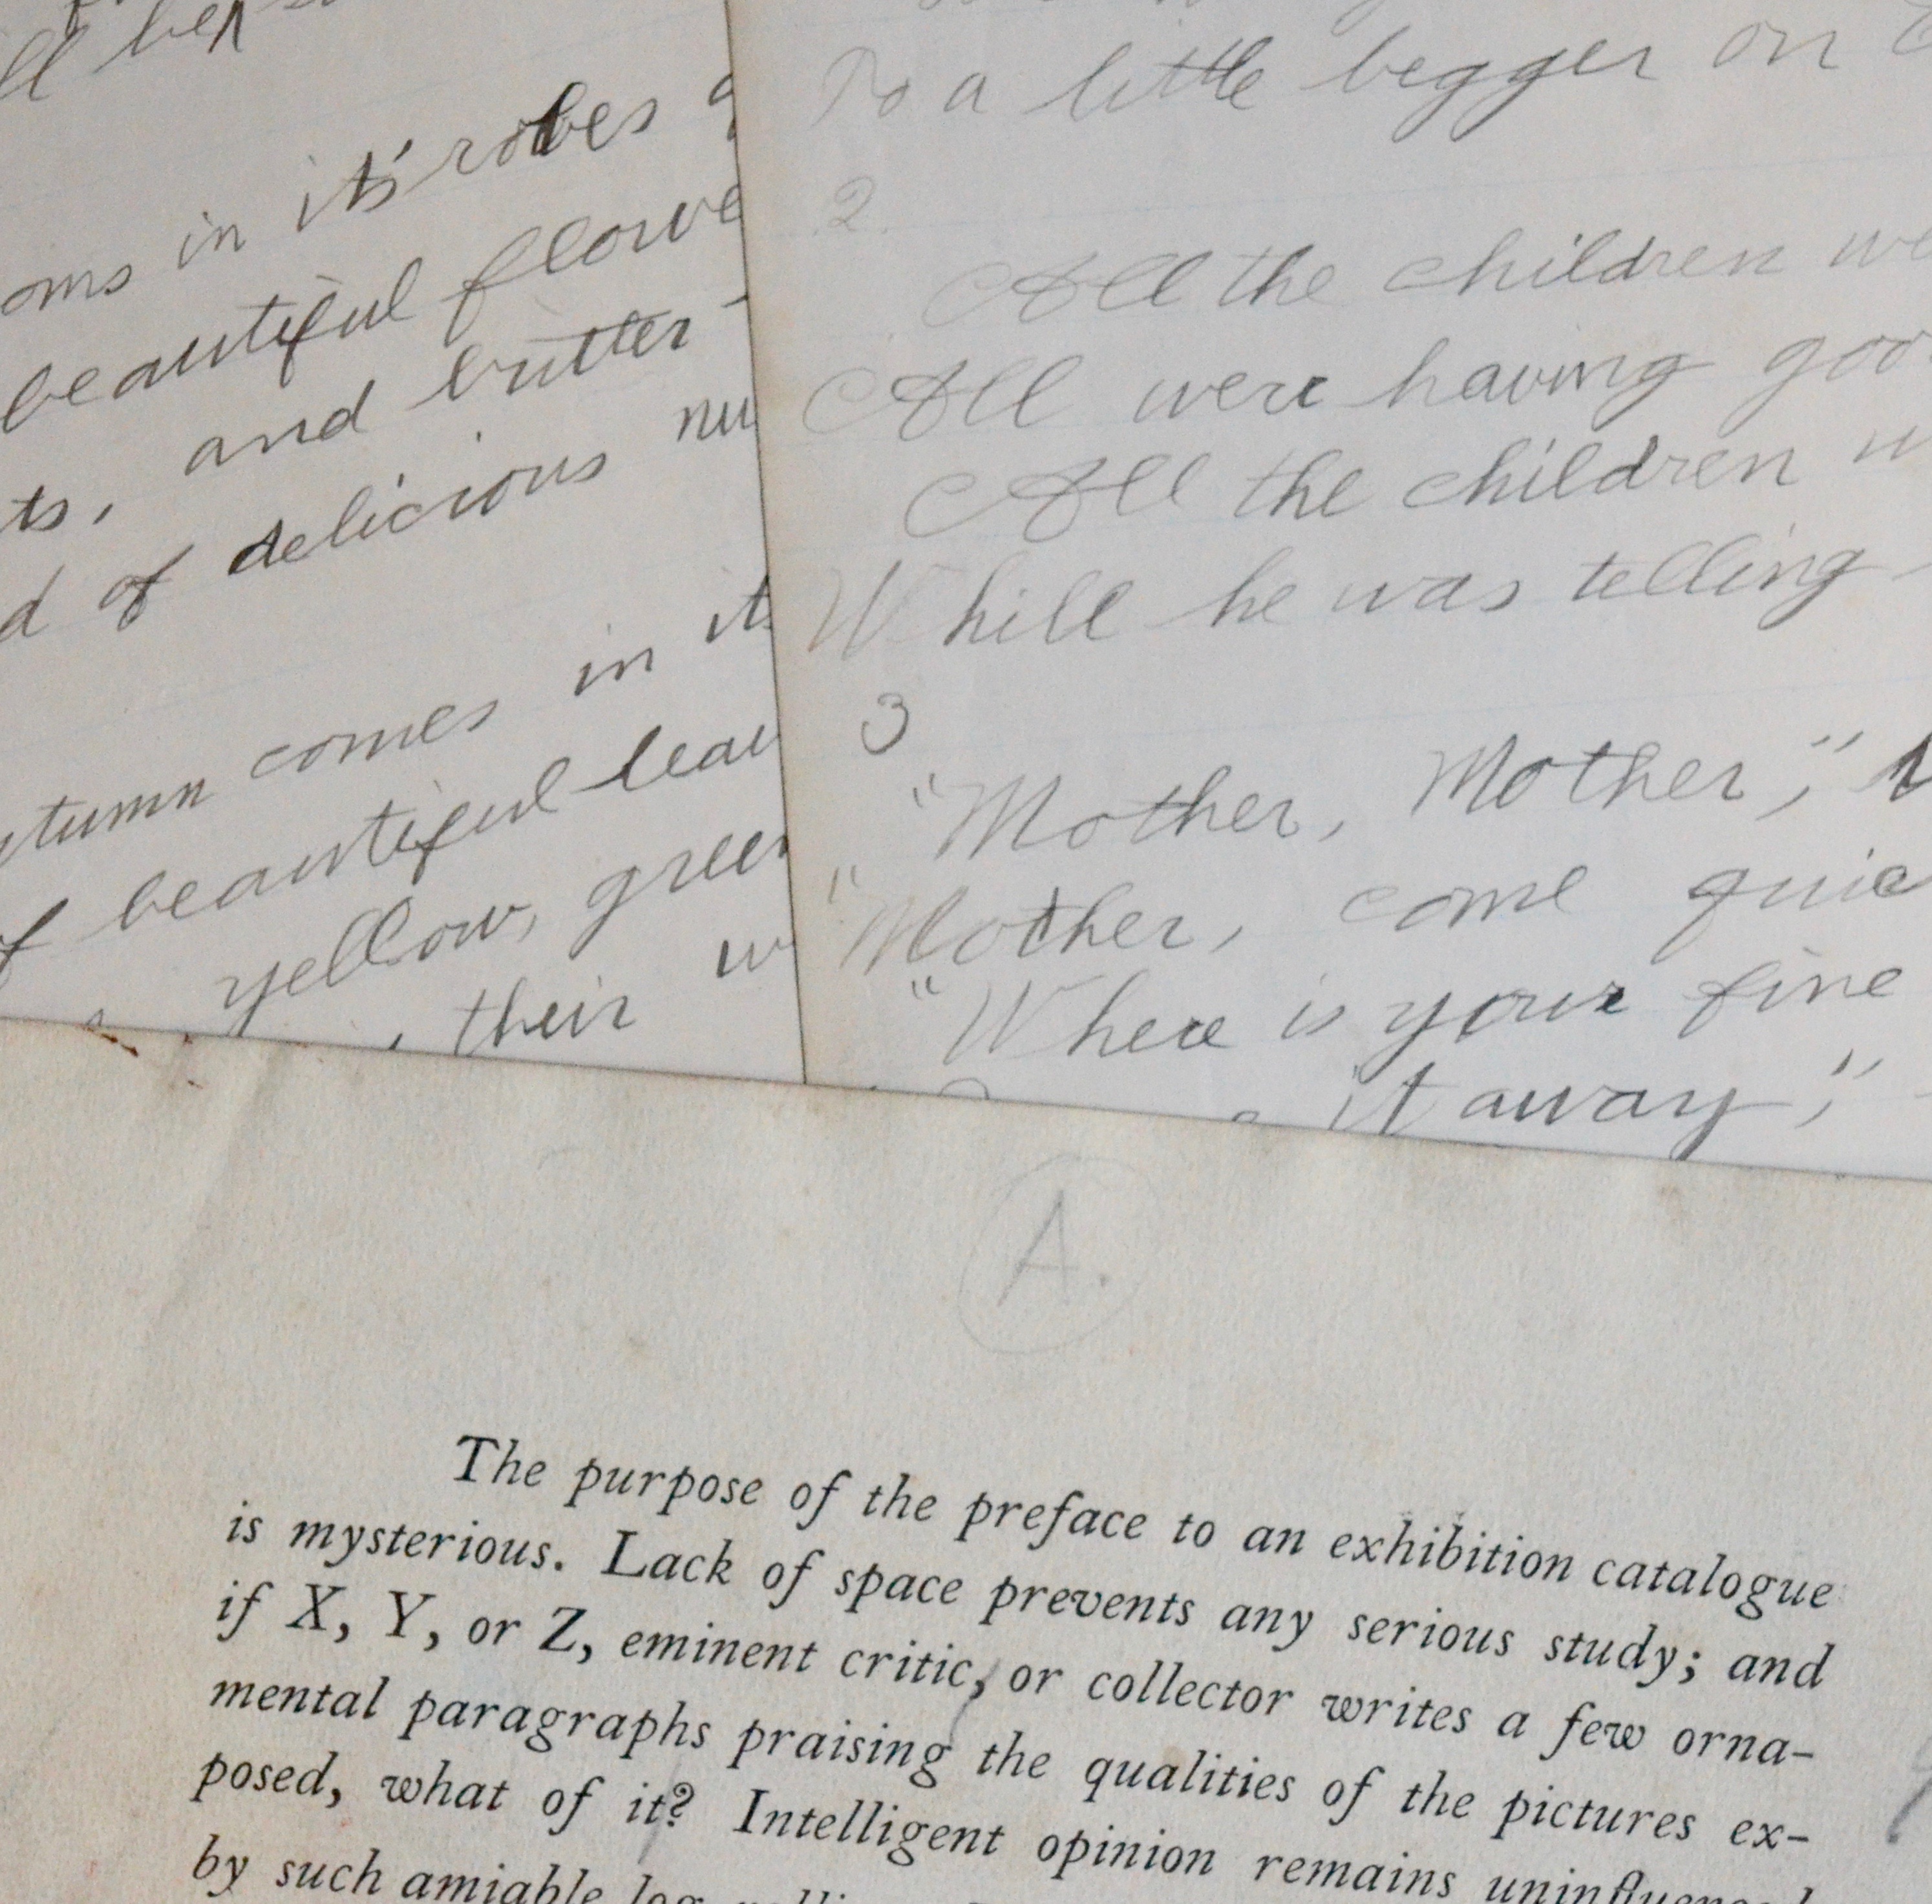 in its' robes
beautiful
and butter-
of delicious
comes in
beautiful
yellow,
their
To a little begger on
2.
All the children
All were having
All the children
Whill he was telling
3
"Mother, Mother,"
"Mother, come
"Where is your fine
it away,"
A.
The purpose of the preface to an exhibition catalogue
is mysterious. Lack of space prevents any serious study; and
if X, Y, or Z, eminent critic, or collector writes a few orna-
mental paragraphs praising the qualities of the pictures ex-
posed, what of it? Intelligent opinion remains uninfluenced
by such amiable log